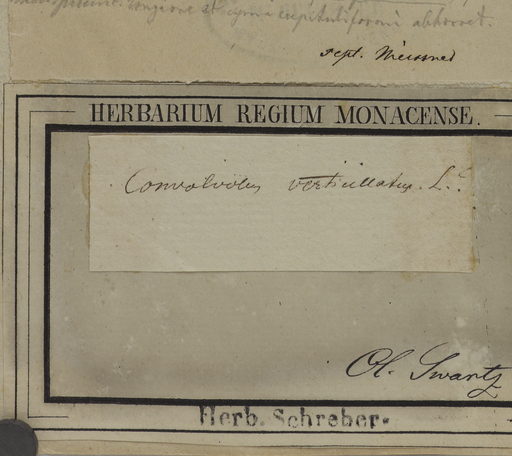 longiore et cyma capituliformi abhorret.
sept. Meissner
HERBARIUM REGIUM MONACENSE.
Convolvulus verticillatus. L.?
Ol. Swartz
Herb. Schreber.